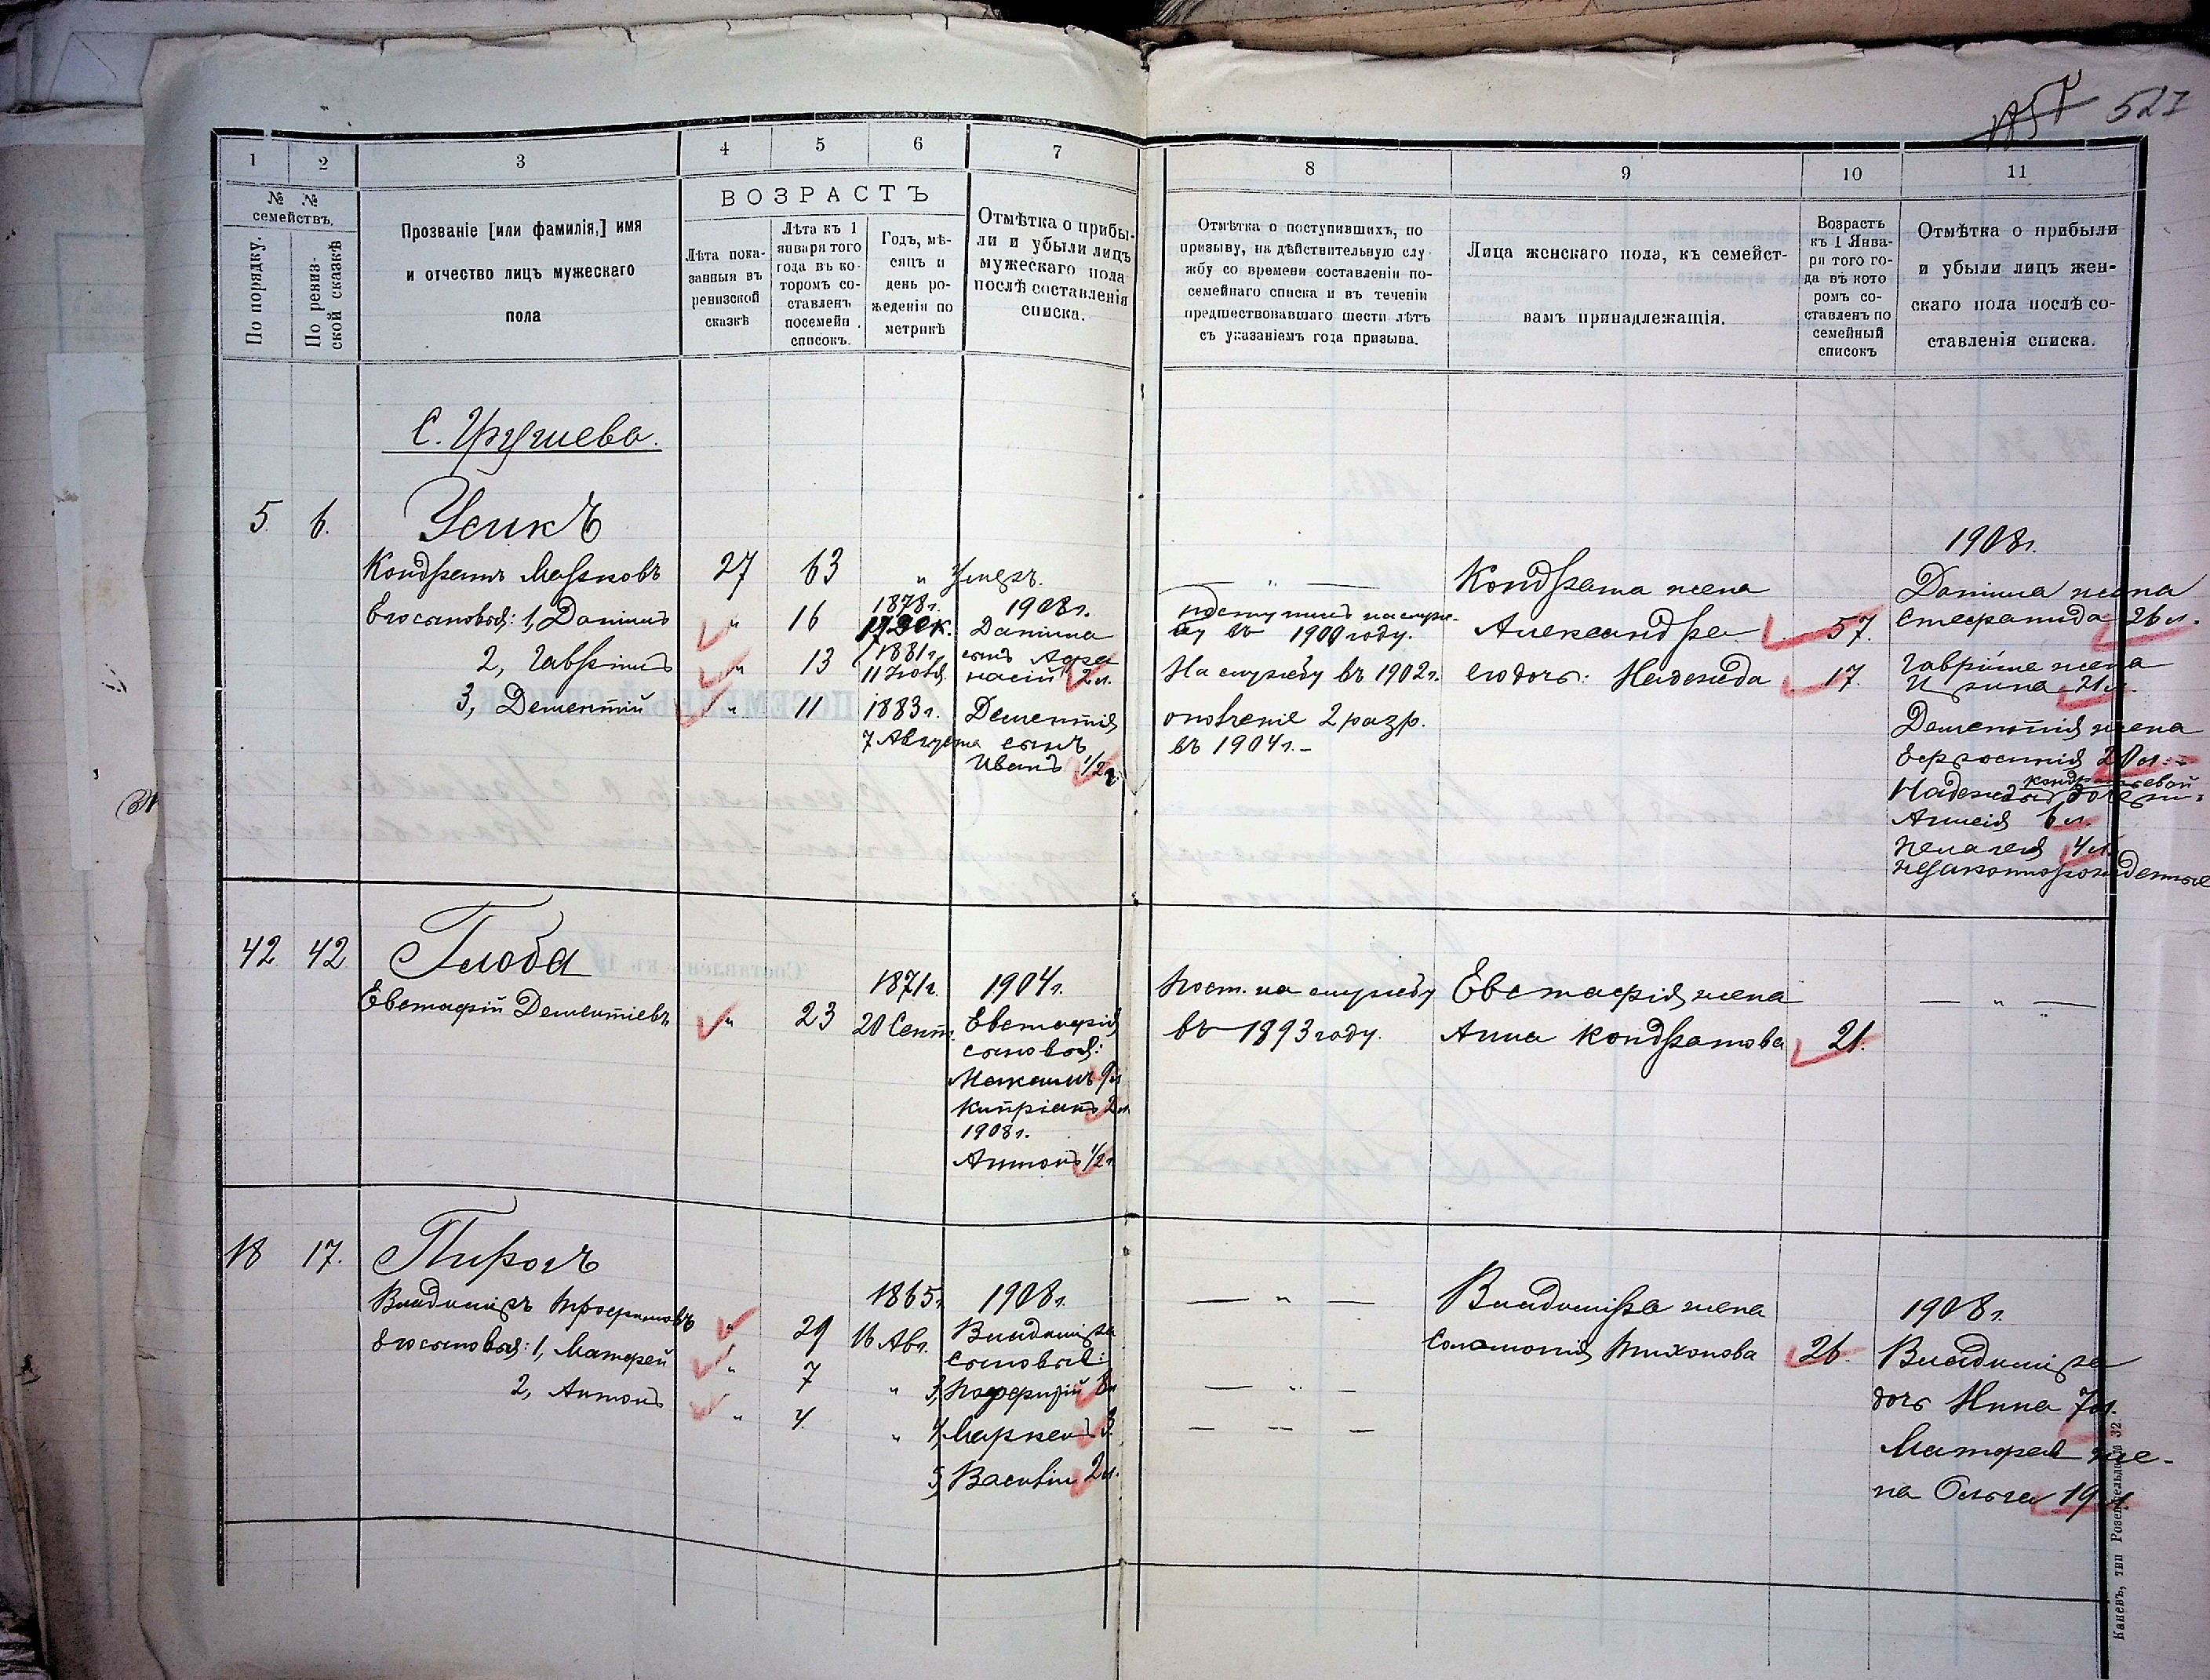 527
1 2 3 4 5 6 7
8 9 10 11
№ № семействъ.
По порядку.
По ревиз-
ской сказкѣ
Прозваніе [или фамилія,] имя
и отчество лицъ мужескаго
пола
ВОЗРАСТЪ
Лѣта пока-
занныя въ
ревизской
сказкѣ
Лѣта къ 1
января того
года въ ко-
торомъ со-
ставленъ
посемейн.
списокъ.
Годъ, мѣ-
сяцъ и
день ро-
жденія по
метрикѣ
Отмѣтка о прибы-
ли и убыли лицъ
мужескаго пола
послѣ составленія
списка.
Отмѣтка о поступившихъ, по
призыву, на дѣйствительную слу-
жбу со времени составленія по-
семейнаго списка и въ теченіи
предшествовавшаго шести лѣтъ
съ указаніемъ года призыва.
Лица женскаго пола, къ семейст-
вамъ принадлежащія.
Возрастъ
къ 1 Янва-
ря того го-
да въ кото
ромъ со-
ставленъ по
семейный
списокъ
Отмѣтка о прибыли
и убыли лицъ жен-
скаго пола послѣ со-
ставленія списка.
С. Грушева.
5. 6. Усикъ
Кондратъ Марковъ 27 63 " Умеръ.
Его сыновья: 1, Даніилъ " 16 1878г. 17 Дек.
2, Гавріилъ " 13 1881г. 11 Іюля
3, Дементій " 11 1883г. 7 Августа
1908г.
Даніила
сынъ Афа
насій 2л.
Дементія
сынъ
Иванъ 1/2 г.
— " —
поступилъ на служ-
бу въ 1900 году.
На службу въ 1902г.
ополченіе 2 разр.
въ 1904г.-
Кондрата жена
Александра 57.
его дочь: Надежда 17.
1908г.
Даніила жена
Стефанида 26л.
Гавріила жена
Ирина 21л.
Дементія жена
Ефросинія 20л.
Кондратьевой
Надежды дочери:
Анисія 6л.
Пелагея 4л.
незаконнорожденные
42 42 Глоба
Евстафій Дементіевъ " 23 1871г. 20 Сент.
1904г.
Евстафія
сыновья:
Максимъ 9л
Кипріанъ 2л.
1908г.
Антонъ 1/2 г
Пост. на службу
въ 1893 году.
Евстафія жена
Анна Кондратова 21.
— " —
18 17. Пирогъ
Владиміръ Трофимовъ " 29 1865г. 16 Авг.
Его сыновья: 1, Матфей " 7 "
2, Антонъ " 4. "
1908г.
Владиміра
сыновья:
3, Порфирій 8л
4, Маркелъ 3.
5, Василій 2л.
— " —
— " —
— — —
Владиміра жена
Соломонія Тихонова 26.
1908г.
Владиміра
дочь Нина 7л.
Матфея же-
на Ольга 19л.
Каневъ, тип Розенфельда № 32.